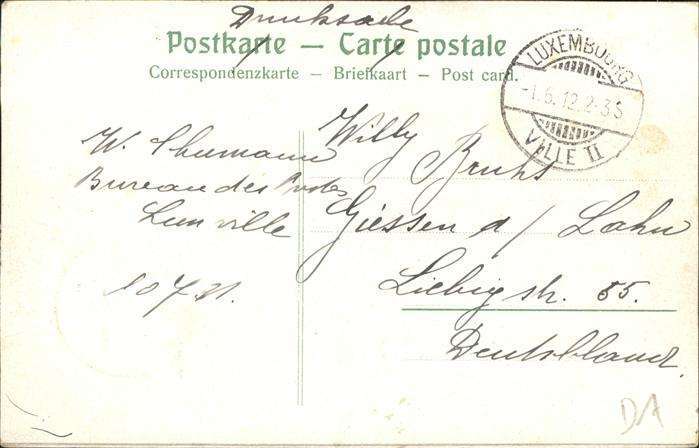 Drucksache
Postkarte — Carte postale
Correspondenzkarte – Briefkaart – Post card.
LUXEMBOURG
-1.6.12.2-3S
VILLE II
W. Schumann
Bureau des Postes
Lux ville
Willy
Bruhs
Giessen a/ Lahn
Liebigstr. 55.
Deutschland.
DA